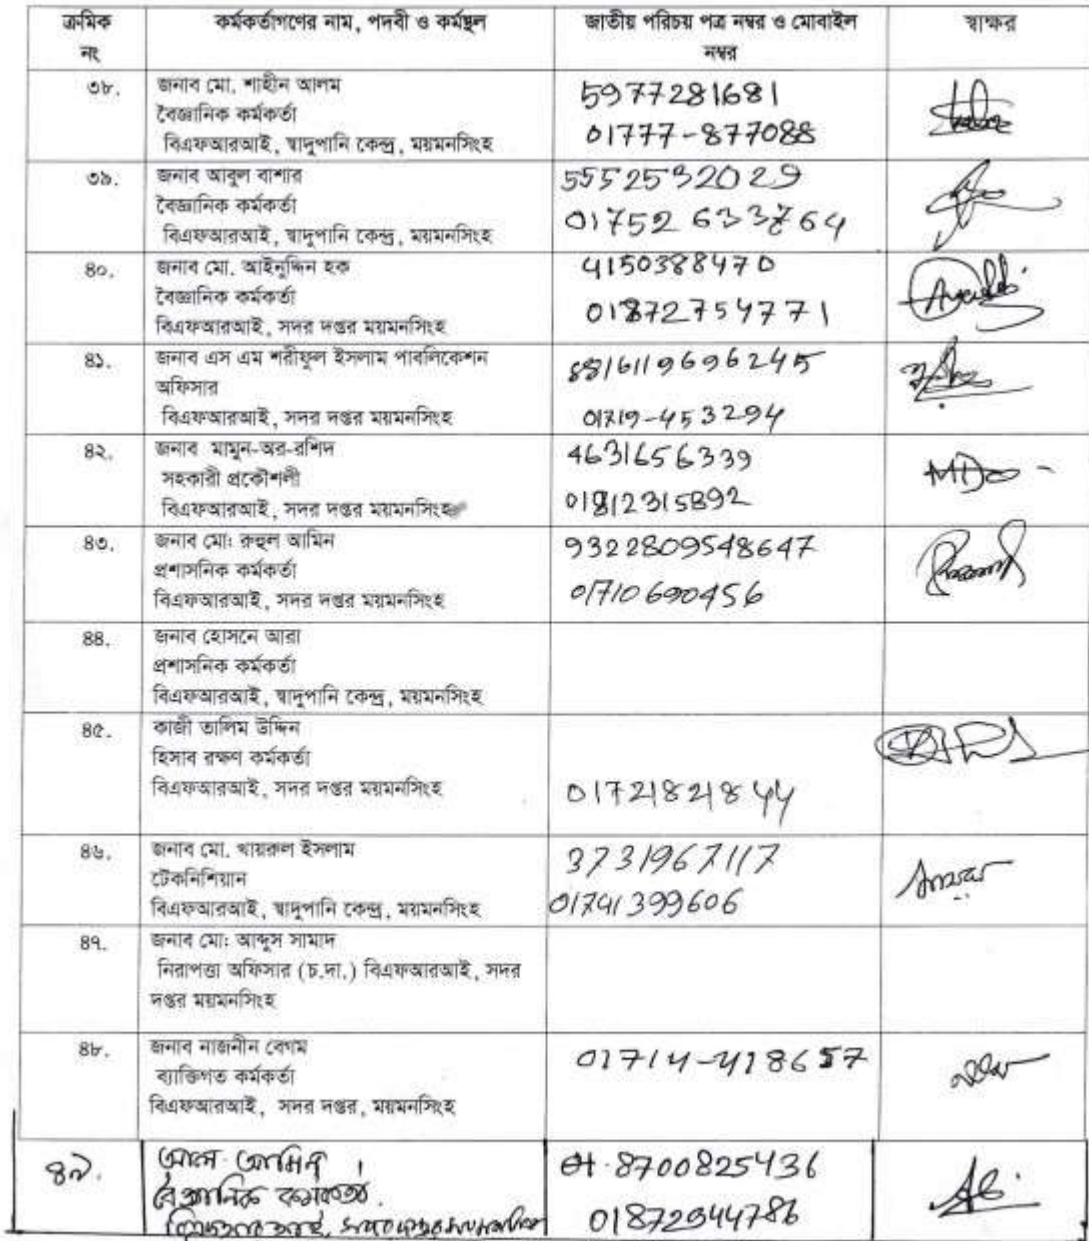 ক্রমিক নং
কর্মকর্তাগণের নাম, পদবী ও কর্মস্থল
জাতীয় পরিচয় পত্র নম্বর ও মোবাইল নম্বর
স্বাক্ষর
৩৮.
জনাব মো. শাহীন আলম
বৈজ্ঞানিক কর্মকর্তা
বিএফআরআই, স্বাদুপানি কেন্দ্র, ময়মনসিংহ
5977281681
01777-877088
৩৯.
জনাব আবুল বাশার
বৈজ্ঞানিক কর্মকর্তা
বিএফআরআই, স্বাদুপানি কেন্দ্র, ময়মনসিংহ
5552532029
01752633764
৪০.
জনাব মো. আইনুদ্দিন হক
বৈজ্ঞানিক কর্মকর্তা
বিএফআরআই, সদর দপ্তর ময়মনসিংহ
4150388470
01872754771
৪১.
জনাব এস এম শরীফুল ইসলাম পাবলিকেশন
অফিসার
বিএফআরআই, সদর দপ্তর ময়মনসিংহ
01719-453294
৪২.
জনাব মামুন-অর-রশিদ
সহকারী প্রকৌশলী
বিএফআরআই, সদর দপ্তর ময়মনসিংহ
4631656339
01912315892
৪৩.
জনাব মো: রুহুল আমিন
প্রশাসনিক কর্মকর্তা
বিএফআরআই, সদর দপ্তর ময়মনসিংহ
9322809548647
01710690456
৪৪.
জনাব হোসনে আরা
প্রশাসনিক কর্মকর্তা
বিএফআরআই, স্বাদুপানি কেন্দ্র, ময়মনসিংহ
৪৫.
কাজী তালিম উদ্দিন
হিসাব রক্ষণ কর্মকর্তা
বিএফআরআই, সদর দপ্তর ময়মনসিংহ
01721821844
৪৬.
জনাব মো. খায়রুল ইসলাম
টেকনিশিয়ান
বিএফআরআই, স্বাদুপানি কেন্দ্র, ময়মনসিংহ
3731967117
01741399606
৪৭.
জনাব মো: আব্দুস সামাদ
নিরাপত্তা অফিসার (চ.দা.) বিএফআরআই, সদর
দপ্তর ময়মনসিংহ
৪৮.
জনাব নাজনীন বেগম
ব্যাক্তিগত কর্মকর্তা
বিএফআরআই, সদর দপ্তর, ময়মনসিংহ
01714-418657
৪৯.
আল আমিন
বৈজ্ঞানিক কর্মকর্তা.
বিএফআরআই, সদর দপ্তর ময়মনসিংহ
8700825436
01872944786